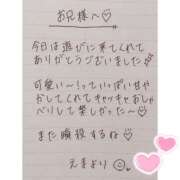 お兄様へ♡
今日は遊びに来てくれて
ありがとうございました
可愛い〜!っていっぱい甘や
かしてくれてキャッキャおしゃ
べりして楽しかった〜♡
また瞬殺するね♡
えまより☺